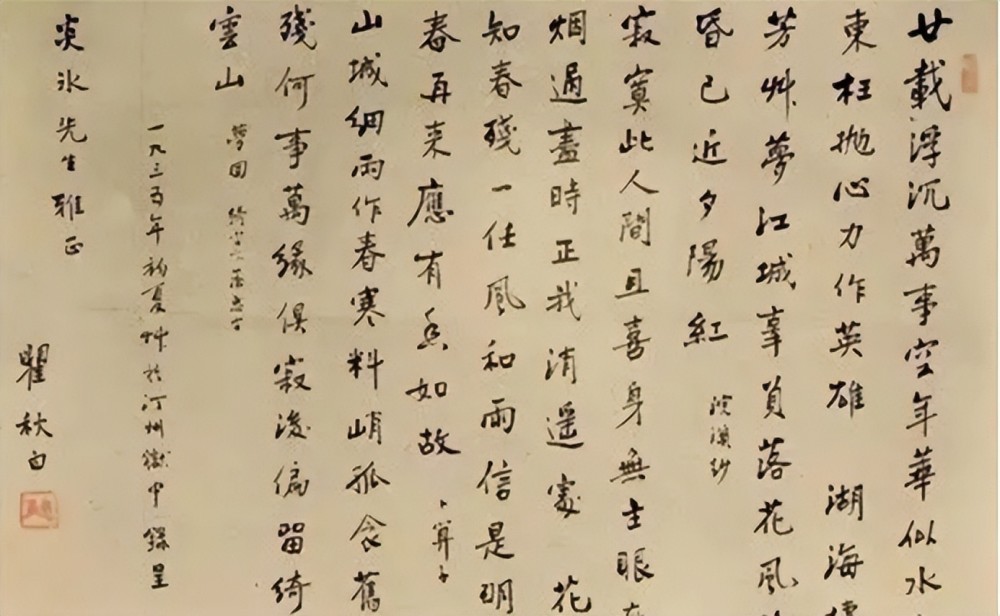 廿載浮沉萬事空年華似水
東枉拋心力作英雄 湖海
芳艸夢江城辜負落花風
昏已近夕陽紅 浣溪紗
寂寞此人間且喜身無主眼
烟過盡時正我消遥處 花
知春殘一任風和雨信是明
春再来應有香如故 卜算子
山城細雨作春寒料峭孤衾舊
殘何事萬緣俱寂後偏留綺
雲山 夢回
一九三五年初夏艸於汀州獄中 錄呈
炎冰先生雅正
瞿秋白